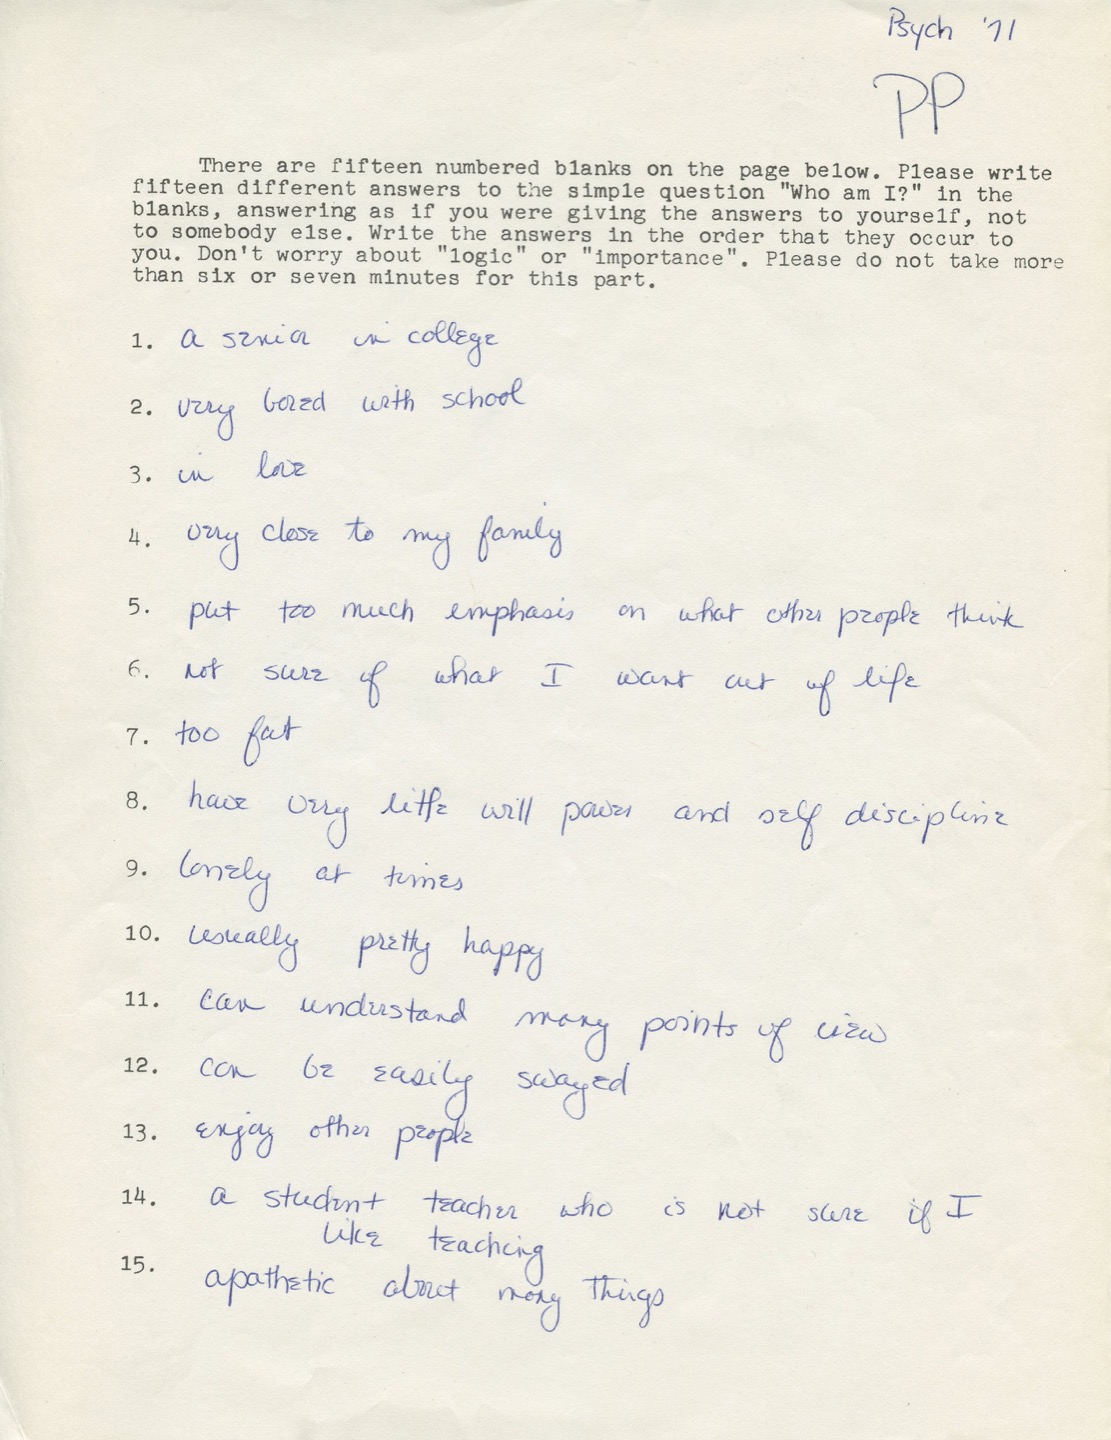 Psych '71
PP
There are fifteen numbered blanks on the page below. Please write
fifteen different answers to the simple question "Who am I?" in the
blanks, answering as if you were giving the answers to yourself, not
to somebody else. Write the answers in the order that they occur to
you. Don't worry about "logic" or "importance". Please do not take more
than six or seven minutes for this part.
1. a senior in college
2. very bored with school
3. in love
4. very close to my family
5. put too much emphasis on what other people think
6. not sure of what I want out of life
7. too fat
8. have very little will power and self discipline
9. lonely at times
10. usually pretty happy
11. can understand many points of view
12. can be easily swayed
13. enjoy other people
14. a student teacher who is not sure if I
like teaching
15. apathetic about many things